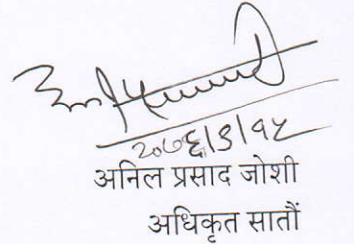 २०७६/९/१५
अनिल प्रसाद जोशी
अधिकृत सातौं